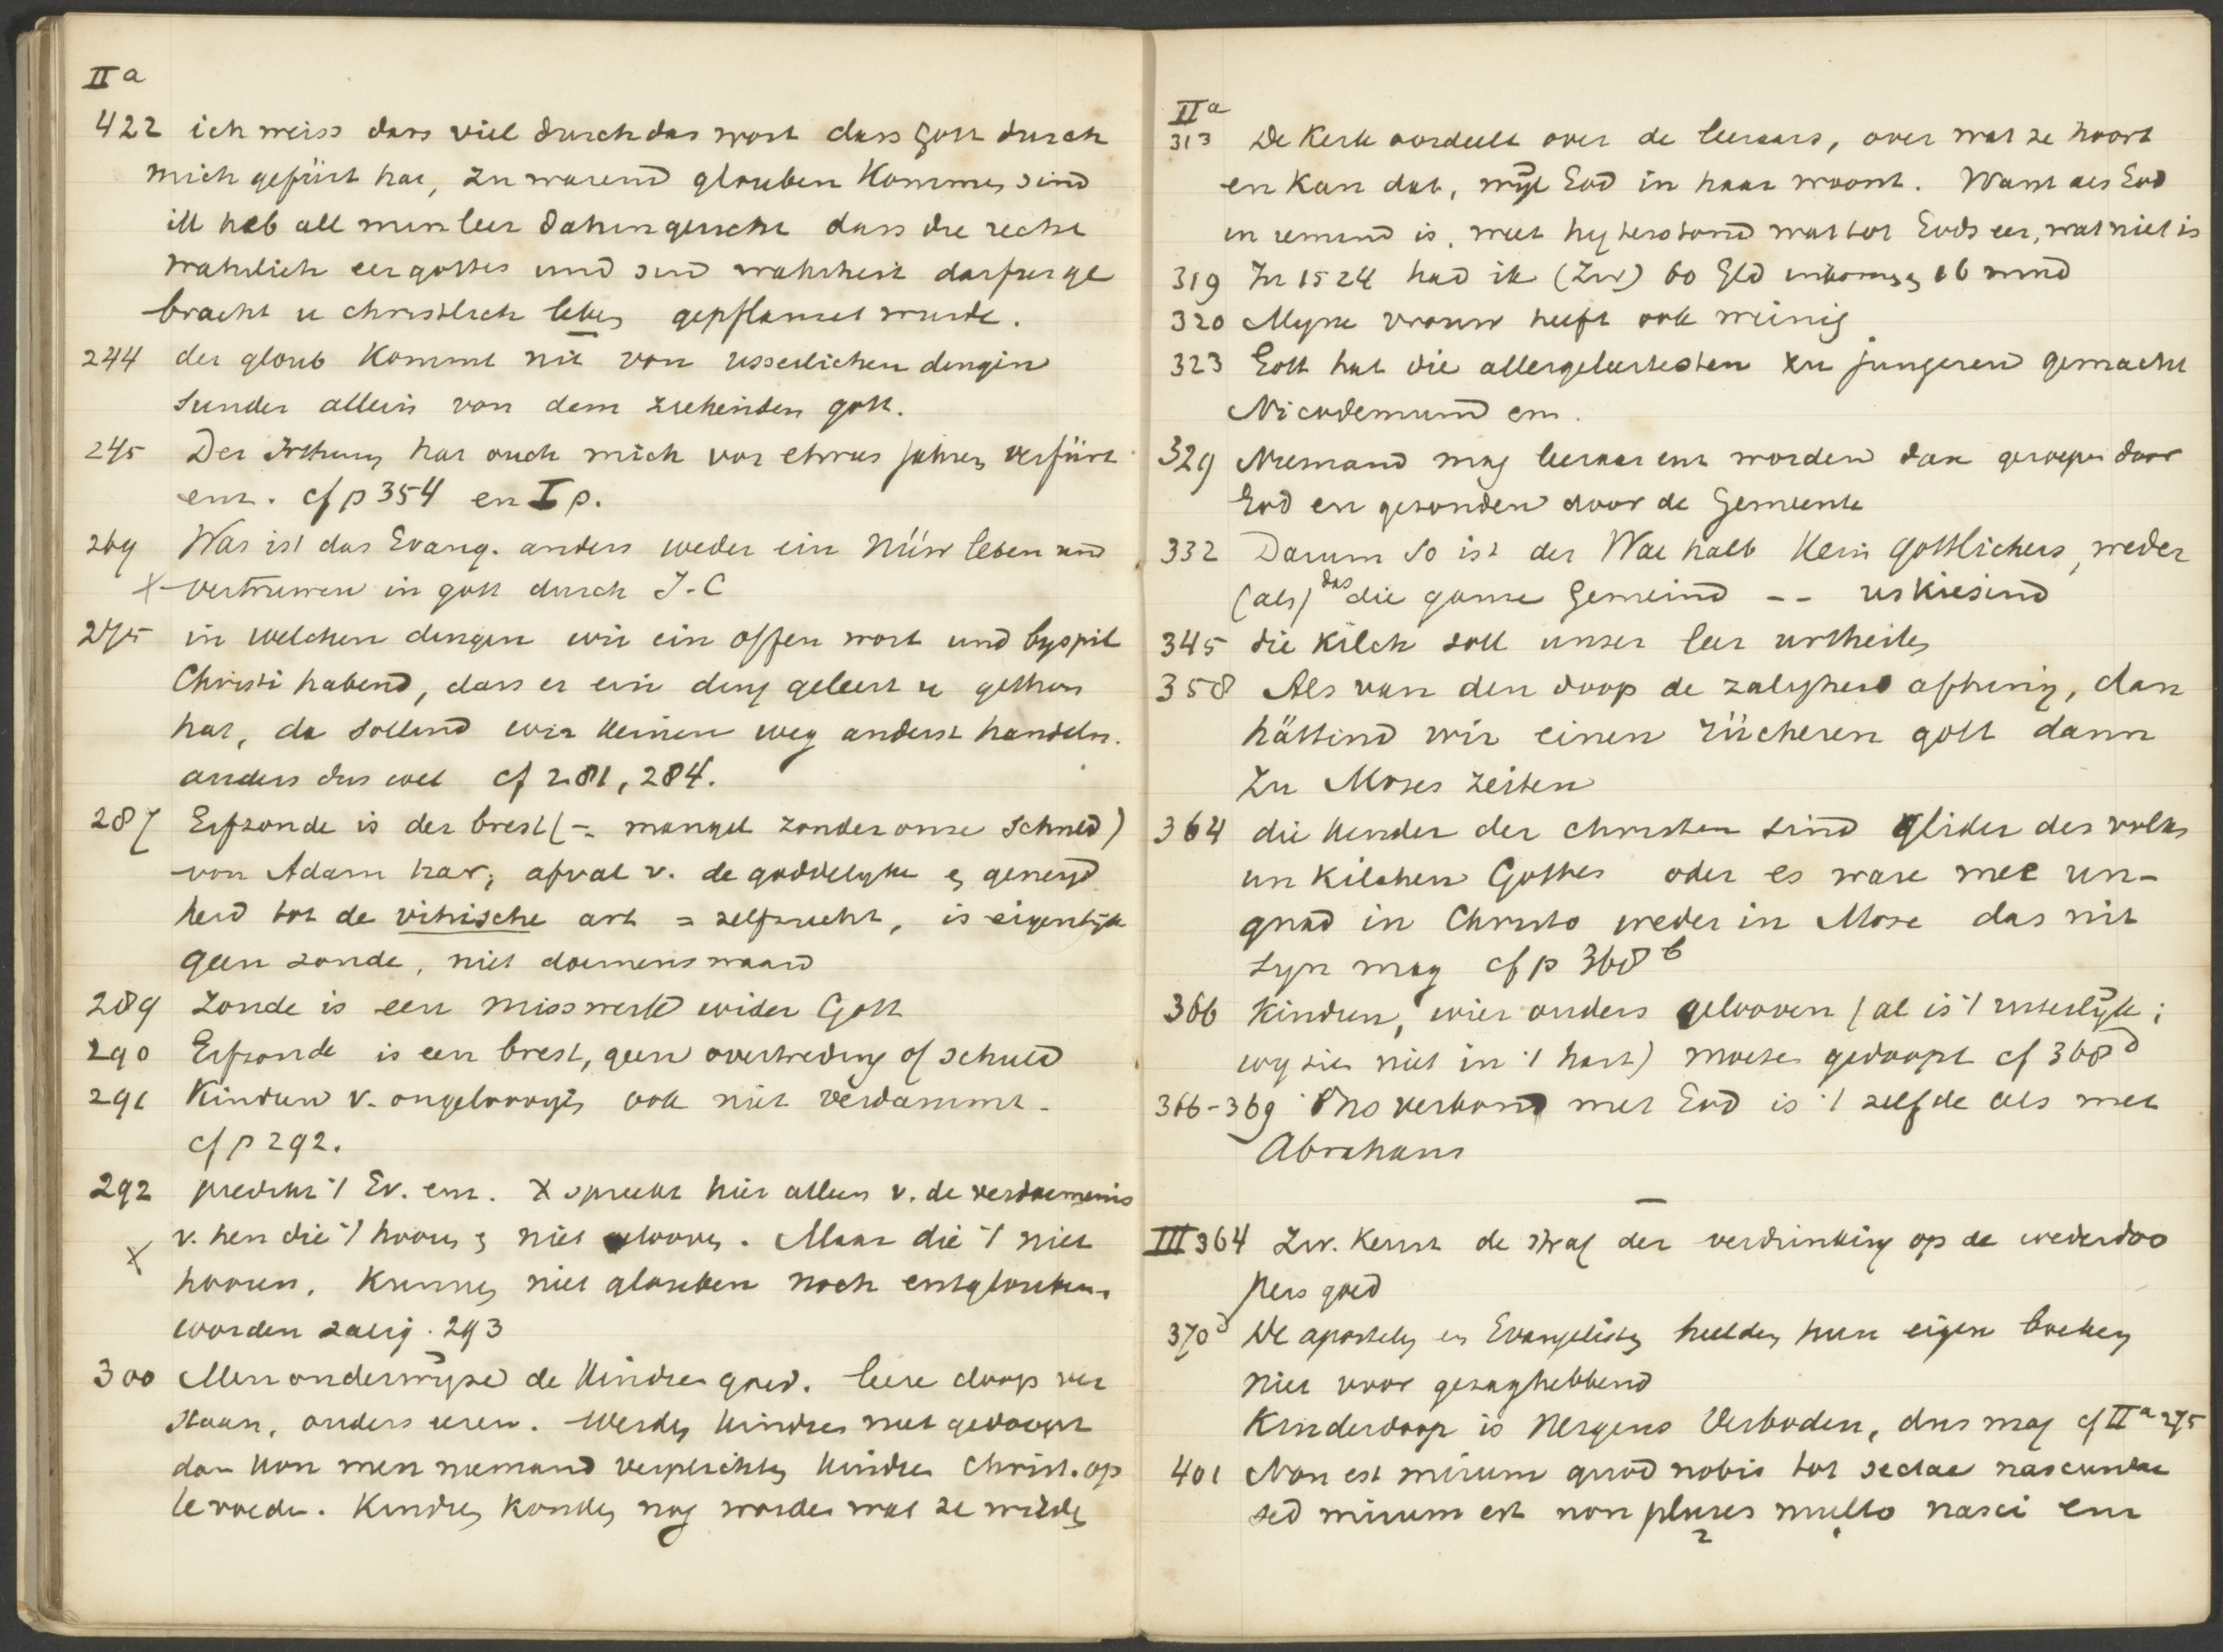 IIa
422 ich weiss dass viel durch das wort dass Gott durch
mich gefürt hat, zu warend glouben Kommen sind
ik hab all min leer dahin gericht dass die recht
wahrlich eer gottes und sin wahrheit darfur ge
bracht u christlich leben gepflanzet wurde.
244 der gloub Kommt nit von usserlichen dingen
sunder allein von dem ziehenden gott.
245 Der Irthum hat ouch mich vor etwas jahren verfürt
enz. cf p 354 en I p.
269 Was ist das Evang. anders weder ein nüw leben und
x vertruwen in gott durch J. C
275 in welchen dingen wir ein offen wort und byspil
Christi habend, dass er ein ding geleert u gethon
hat, da sollend wir keinen weg anderst handeln.
anders dus wel cf 281, 284.
287 Erfzonde is der brest (= mangel zonder onze schuld)
von Adam har; afval v. de goddelyke en geneigd
heid tot de vihische art = zelfzucht, is eigentlijk
geen zonde, niet doemenswaard
289 Zonde is een misswerk wider Gott
290 Erfzonde is een brest, geen overtreding of schuld
291 Kindren v. ongeloovigen ook niet verdammt.
cf p 292.
292 predikt 't Ev. enz. X spreekt hier alleen v. de verdoemenis
v. hen die 't hooren en niet gelooven. Maar die 't niet
x
hooren, Kunnen niet glouben noch entglouben
worden zalig. 293
300 Men onderwijze de Kindren goed. leere doop ver
staan, anders eren. Werden Kindren niet gedoopt
dan kon men niemand verplichten Kindren christ. op
te voeden. Kindren konden nog worden wat ze wilden
IIa
313 De Kerk oordeelt over de leeraars, over wat ze hoort
en Kan dat, wijl God in haar woont. Want als God
in iemand is, weet hy terstond wat tot Gods eer, wat niet is
319 In 1524 had ik (Zw) 60 Gld inkomen, 16 mud
320 Myne vrouw heeft ook weinig
323 Gott hat die allergeleertesten zu jungeren gemacht
Nicodemum enz.
329 Niemand mag leeraar enz worden dan geroepen door
God en gezonden door de Gemeente
332 Darum so ist der Wal halb Kein gottlichers, weder
(als) das die ganze Gemeind -- uskiesind
345 die Kilch soll unser leer urtheilen
358 Als van den doop de zaligheid afhing, dan
hättind wir einen rücheren gott dann
Zu Moses zeiten
364 die Kinder der christen sind glider des volks
un Kilchen Gottes oder es ware mee un-
gnad in Christo weder in Mose das nit
syn mag cf p 368 b
366 Kindren, wier ouders gelooven (al is 't uiterlijk;
wy zien niet in 't hart) moeten gedoopt cf 368 d
366-369 Ons verbond met God is 't zelfde als met
Abraham
III 364 Zw. Keurt de straf der verdrinking op de wederdoo
pers goed
370 d De apostelen en Evangelisten hielden hun eigen boeken
niet voor gezaghebbend
Kinderdoop is nergens verboden, dus mag cf IIa 275
401 Non est mirum quod nobis tot sectae nascuntur
sed mirum est non plures multo nasci enz
2